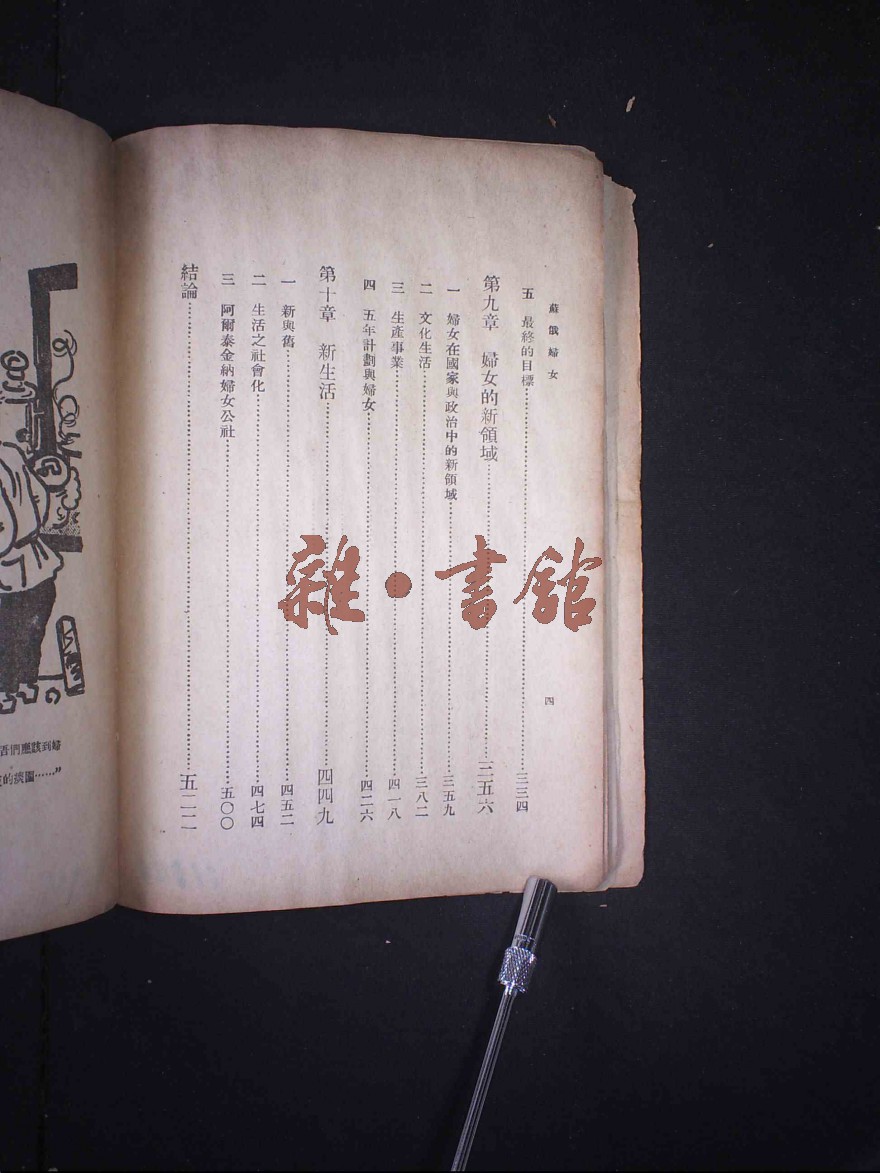 蘇俄婦女
四
五 最終的目標……三三四
第九章 婦女的新領域……三五六
一 婦女在國家與政治中的新領域……三五九
二 文化生活……三八二
三 生產事業……四一八
四 五年計劃與婦女……四二六
第十章 新生活……四四九
一 新與舊……四五二
二 生活之社會化……四七四
三 阿爾泰金納婦女公社……五〇〇
結論……五二二
雜·書館
們應該到婦
的談圖……”